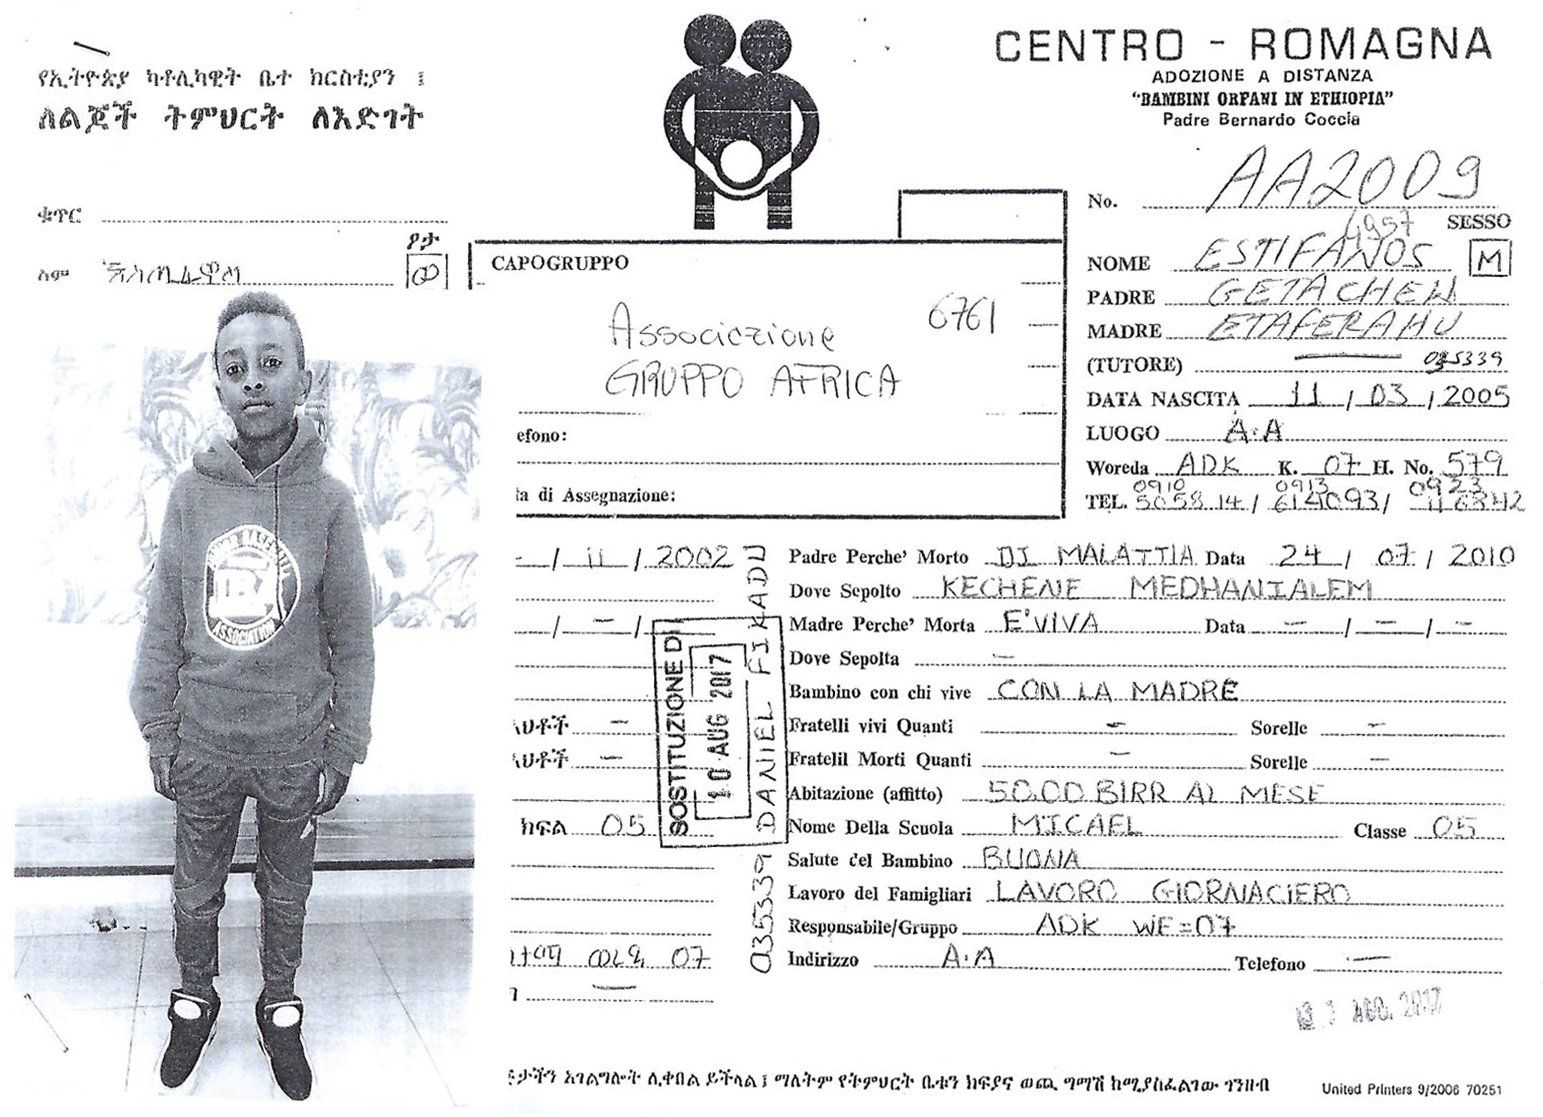 የኢትዮጵያ ካቶሊካዊት ቤተ ክርስቲያን ፤
ለልጆች ትምህርት ለእድገት
ቁጥር
ፆታ
ስም እስጢፋኖስ ወ
CENTRO - ROMAGNA
ADOZIONE A DISTANZA
"BAMBINI ORFANI IN ETHIOPIA"
Padre Bernardo Coccia
No. AA2009
4957 SESSO
NOME ESTIFANOS M
PADRE GETACHEW
MADRE ETAFERAHU
(TUTORE) 035339
DATA NASCITA 11 / 03 / 2005
LUOGO A.A
Woreda ADK K. 07 H. No. 579
TEL. 0910 505814 / 0913 614093 / 0923
CAPOGRUPPO
6761
Associazione
GRUPPO AFRICA
efono:
ta di Assegnazione:
- / 11 / 2002
- / - /
እህቶች -
እህቶች -
ክፍል 05
ወረዳ 07
SOSTITUZIONE DI
10 AUG 2017
035339 DANIEL FIKADU
Padre Perche' Morto DI MALATTIA Data 24 / 07 / 2010
Dove Sepolto KECHENE MEDHANIALEM
Madre Perche' Morta E'VIVA Data - / - / -
Dove Sepolta -
Bambino con chi vive CON LA MADRE
Fratelli vivi Quanti - Sorelle -
Fratelil Morti Quanti - Sorelle -
Abitazione (affitto) 50.00 BIRR AL MESE
Nome Della Scuola MICAEL Classe 05
Salute del Bambino BUONA
Lavoro del Famigliari LAVORO GIORNACIERO
Responsabile/Gruppo ADK WE=07
Indirizzo A.A Telefono -
AGO. 2017
አገልግሎት ሊቀበል ይችላል ፤ ማለትም የትምህርት ቤቱን ክፍያና ወጪ ግማሽ ከሚያስፈልገው ገንዘብ
United Printers 9/2006 70251
ASSOCIATION